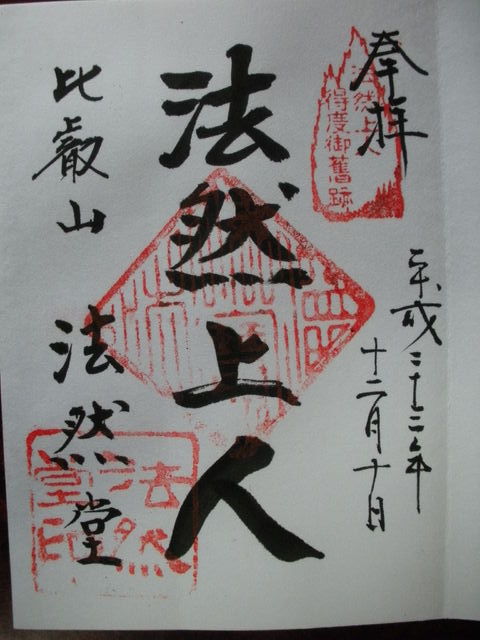 奉拝
法然上人
得度御舊跡
平成二十三年
十二月十日
法然上人
比叡山
法然堂
法然
堂印